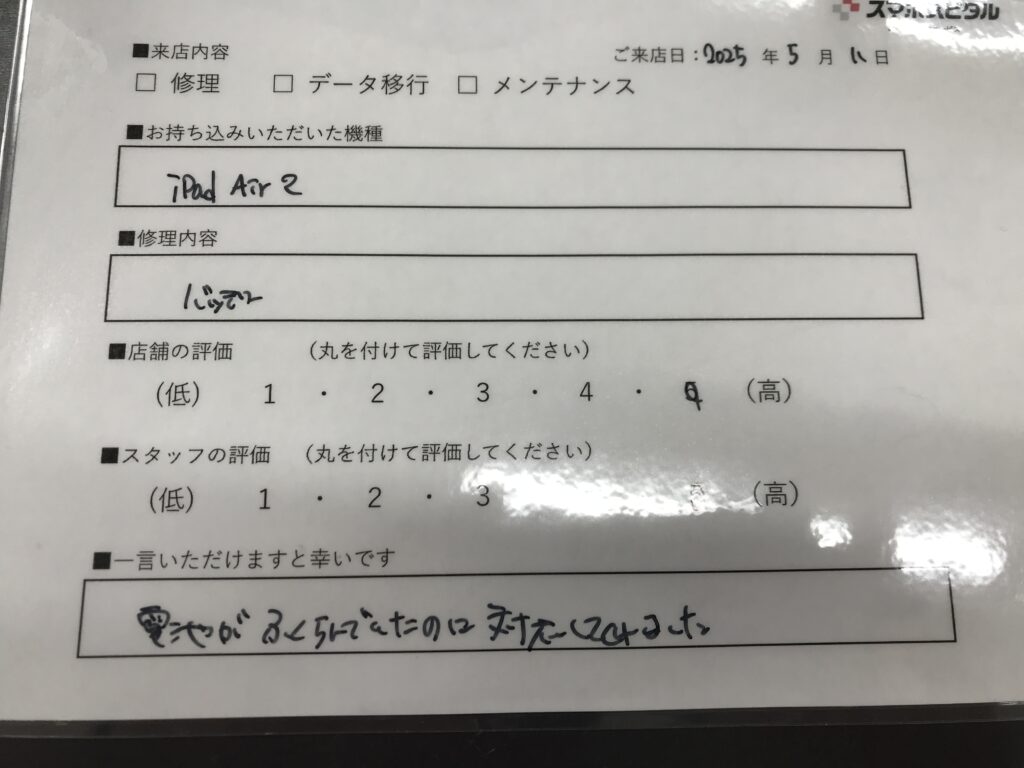 スマホスピタル
■来店内容 ご来店日：2025 年 5 月 11 日
□ 修理 □ データ移行 □ メンテナンス
■お持ち込みいただいた機種
iPad Air 2
■修理内容
バッテリー
■店舗の評価 （丸を付けて評価してください）
（低） 1 ・ 2 ・ 3 ・ 4 ・ （高）
■スタッフの評価 （丸を付けて評価してください）
（低） 1 ・ 2 ・ 3 （高）
■一言いただけますと幸いです
電池がふくらんでいたのに対応してくれました